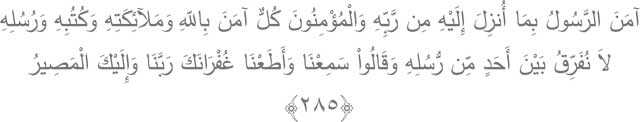 آمَنَ الرَّسُولُ بِمَا أُنزِلَ إِلَيْهِ مِن رَّبِّهِ وَالْمُؤْمِنُونَ كُلٌّ آمَنَ بِاللّهِ وَمَلآئِكَتِهِ وَكُتُبِهِ وَرُسُلِهِ
لاَ نُفَرِّقُ بَيْنَ أَحَدٍ مِّن رُّسُلِهِ وَقَالُواْ سَمِعْنَا وَأَطَعْنَا غُفْرَانَكَ رَبَّنَا وَإِلَيْكَ الْمَصِيرُ
﴿٢٨٥﴾